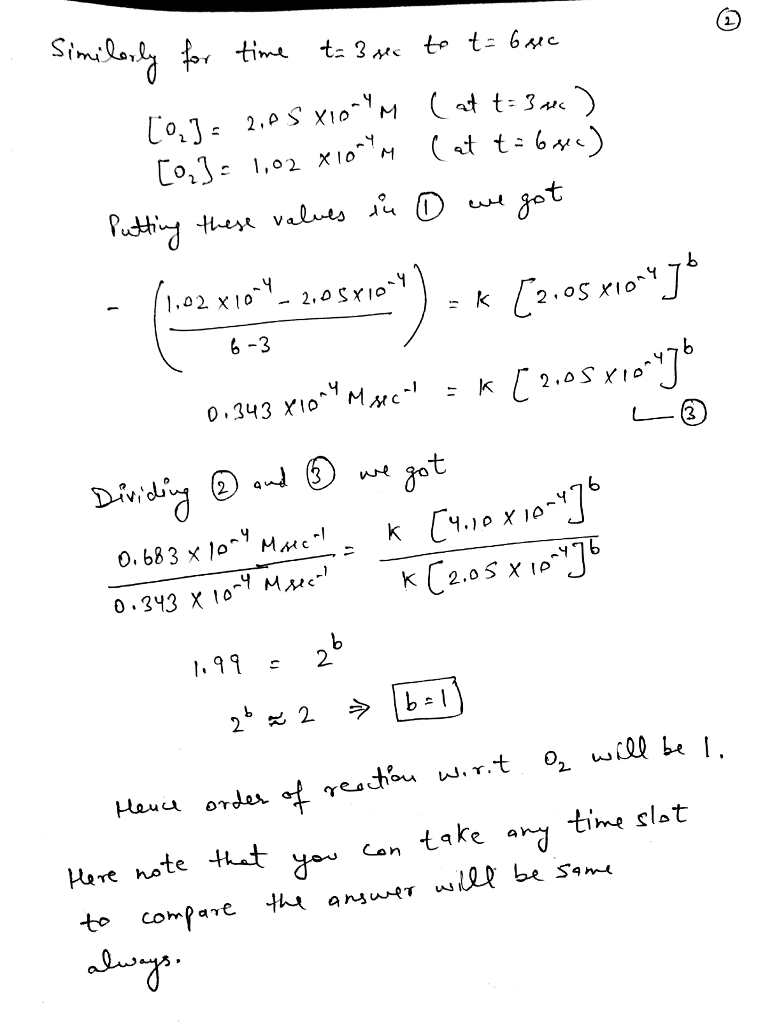 ②
Similarly for time t= 3 sec to t= 6 sec
[O₂] = 2.05 X10⁻⁴ M (at t=3 sec)
[O₂] = 1.02 X10⁻⁴ M (at t=6 sec)
Putting these values in ① we got
- (1.02 X10⁻⁴ - 2.05X10⁻⁴ / 6-3) = K [2.05 X10⁻⁴]ᵇ
0.343 X10⁻⁴ M sec⁻¹ = K [2.05 X10⁻⁴]ᵇ
③
Dividing ② and ③ we got
0.683 X 10⁻⁴ M sec⁻¹ / 0.343 X 10⁻⁴ M sec⁻¹ = K [4.10 X 10⁻⁴]ᵇ / K [2.05 X 10⁻⁴]ᵇ
1.99 = 2ᵇ
2ᵇ ≈ 2 ⇒ b=1
Hence order of reaction w.r.t O₂ will be 1.
Here note that you can take any time slot
to compare the answer will be same
always.